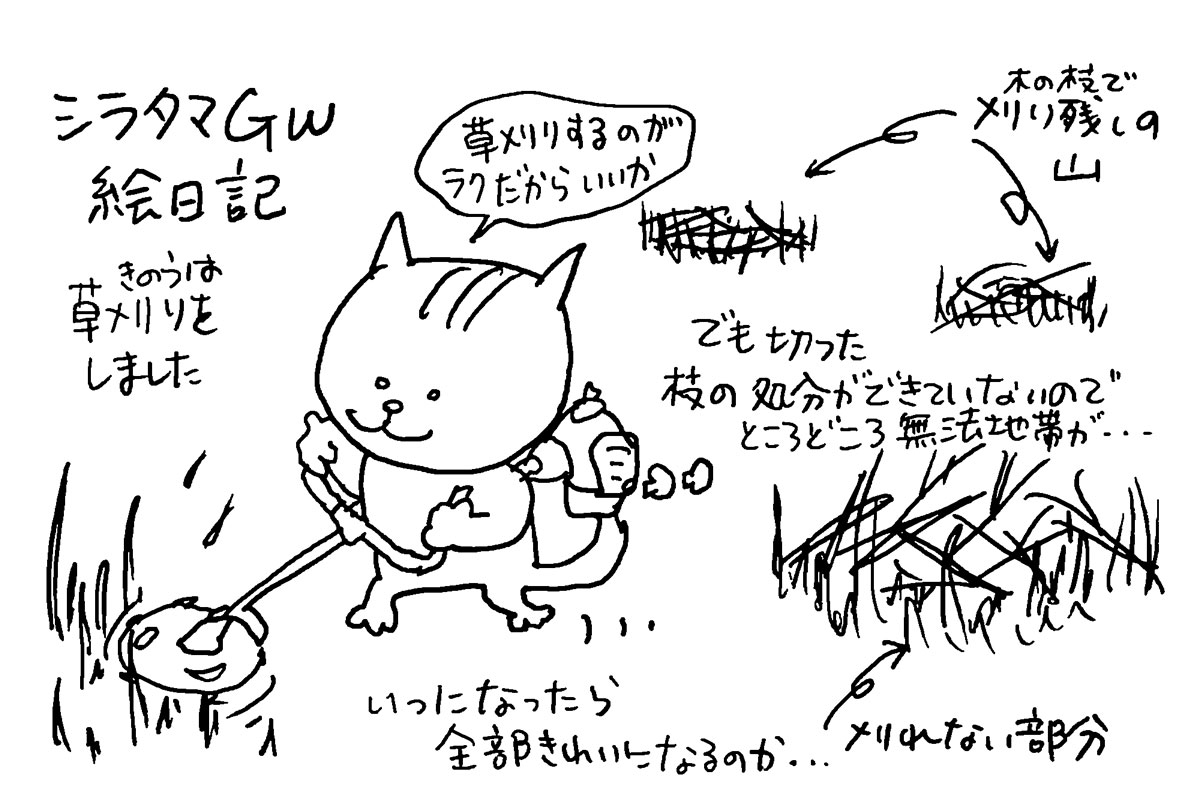 シラタマGW
絵日記
きのうは
草刈りを
しました
草刈りするのが
ラクだからいいか
木の枝で
刈り残しの
山
でも切った
枝の処分ができていないので
ところどころ無法地帯が・・・
刈れない部分
いつになったら
全部きれいになるのか・・・